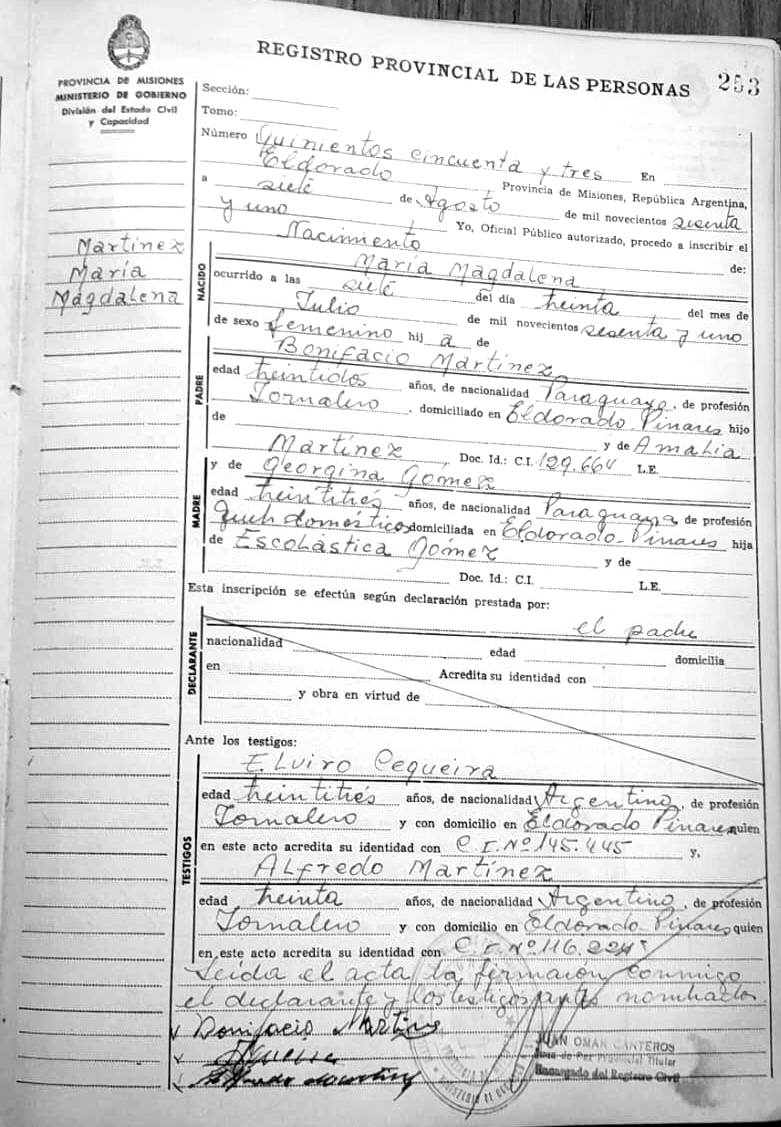 REGISTRO PROVINCIAL DE LAS PERSONAS
253
PROVINCIA DE MISIONES
MINISTERIO DE GOBIERNO
División del Estado Civil
y Capacidad
Martínez
María
Magdalena
Sección:
Tomo:
Número Quinientos cincuenta y tres En
Eldorado Provincia de Misiones, República Argentina,
a siete de Agosto de mil novecientos sesenta
y uno Yo, Oficial Público autorizado, procedo a inscribir el
Nacimiento de:
NACIDO
María Magdalena
ocurrido a las siete del día treinta del mes de
Julio de mil novecientos sesenta y uno
de sexo femenino hij a de
PADRE
Bonifacio Martínez
edad treintidos años, de nacionalidad Paraguaya, de profesión
Jornalero, domiciliado en Eldorado Pinares hijo
de y de Amalia
Martínez Doc. Id.: C.I. 129.664 L.E.
MADRE
y de Georgina Gómez
edad treintitrés años, de nacionalidad Paraguaya de profesión
Queh domésticos domiciliada en Eldorado-Pinares hija
de Escolástica Gómez y de
Doc. Id.: C.I. L.E.
Esta inscripción se efectúa según declaración prestada por:
el padre
DECLARANTE
nacionalidad edad domicilia
en Acredita su identidad con
y obra en virtud de
Ante los testigos:
TESTIGOS
Elviro Cequeira
edad treintitrés años, de nacionalidad Argentino, de profesión
Jornalero y con domicilio en Eldorado Pinares quien
en este acto acredita su identidad con C.I. Nº 145.445 y,
Alfredo Martínez
edad treinta años, de nacionalidad Argentino, de profesión
Jornalero y con domicilio en Eldorado Pinares quien
en este acto acredita su identidad con C.I. Nº 116.224
Leída el acta la firmaron conmigo
el declarante y los testigos antes nombrados
Bonifacio Martínez
Alfredo Martínez
JUAN OMAR CANTEROS
Juez de Paz Provincial Titular
Encargado del Registro Civil